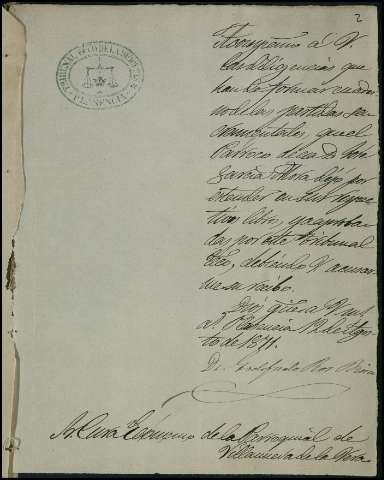 2
TRIBUNAL ECO DE LA DIOCESIS
PLASENCIA
Acompaño á V.
las diligencias que
han de formar cuader
no de las partidas sa-
cramentales, que el
Parroco de esa D. José
Garcia Mora dejó por
estender en sus respec
tivos libros, y aproba-
das por este Tribunal
Eco, debiendo V. acusar
me su recibo.
Dios gũe a V. m.
aˢ. Plasencia 12 de Agos
to de 1871.
Dr.
Sr. Cura Ecónomo de la Parroquial de
Villanueva de la Vera